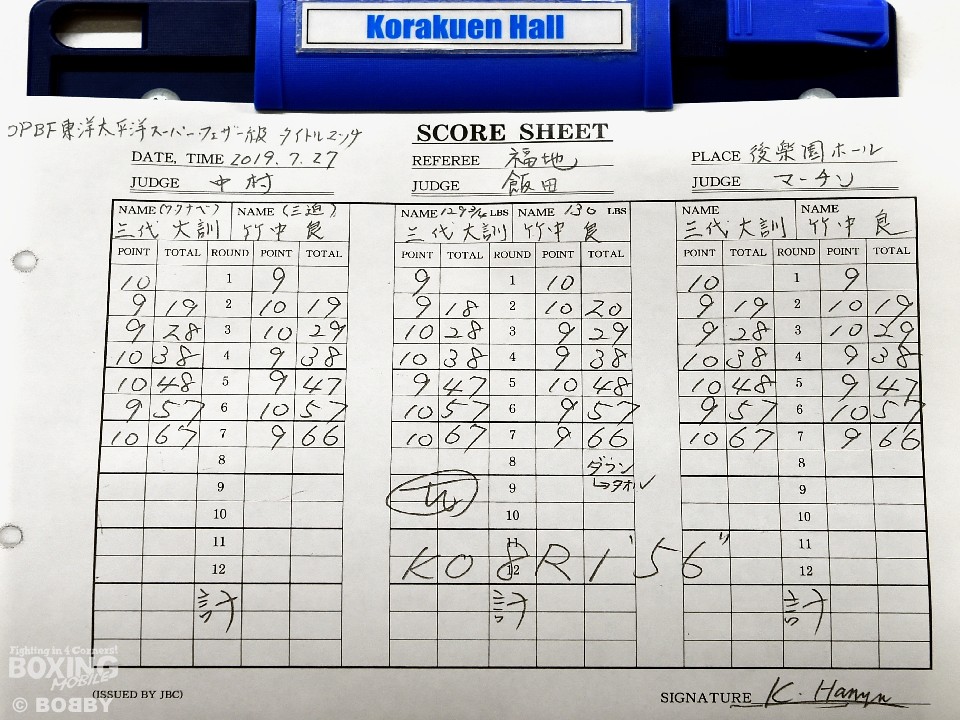 Korakuen Hall
OPBF東洋太平洋スーパーフェザー級 タイトルマッチ
SCORE SHEET
DATE, TIME 2019.7.27 REFEREE 福地 PLACE 後楽園ホール
JUDGE 中村 JUDGE 飯田 JUDGE マーチン
NAME (ワタナベ) NAME (三迫) NAME 129 3/4 LBS NAME 130 LBS NAME NAME
三代大訓 竹中良 三代大訓 竹中良 三代大訓 竹中良
POINT TOTAL ROUND POINT TOTAL POINT TOTAL ROUND POINT TOTAL POINT TOTAL ROUND POINT TOTAL
10 1 9 9 1 10 10 1 9
9 19 2 10 19 9 18 2 10 20 9 19 2 10 19
9 28 3 10 29 10 28 3 9 29 9 28 3 10 29
10 38 4 9 38 10 38 4 9 38 10 38 4 9 38
10 48 5 9 47 9 47 5 10 48 10 48 5 9 47
9 57 6 10 57 10 57 6 9 57 9 57 6 10 57
10 67 7 9 66 10 67 7 9 66 10 67 7 9 66
8 8 ダウン 8
9 9 →タオル 9
10 10 10
11 11 11
12 12 12
KO 8R 1'56"
計 計 計
Fighting in 4 Corners!
BOXING
MOBILE
© BOBBY
(ISSUED BY JBC) SIGNATURE K.